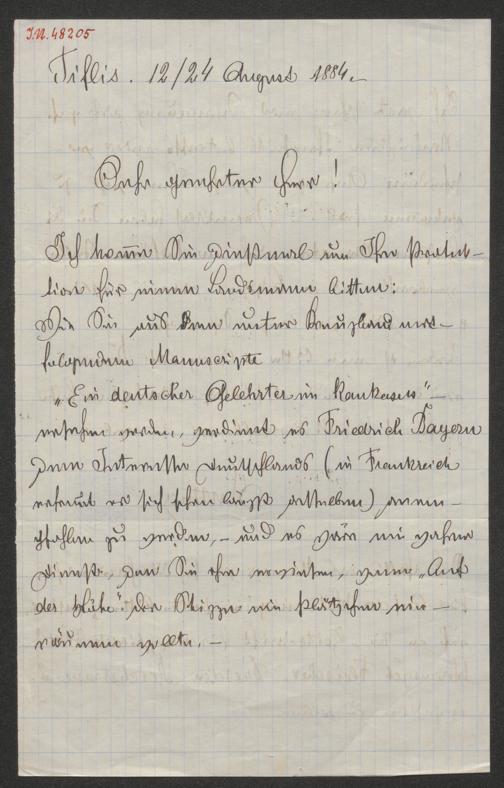 I.N. 48205
Tiflis. 12/24 August 1884.–
Sehr geehrter Herr!
Ich komme Sie dießmal um Ihre Protek–
tion für einen Landsmann bitten:
Wie Sie aus dem unter Kreuzband mit–
folgendem Manuscripte
„Ein deutscher Gelehrter im Kaukasus"–
ersehen werden, verdient es Friedrich Bayern
dem Interesse Deutschlands (in Frankreich
erfreut er sich schon längst desselben) anem–
pfohlen zu werden, – und es wäre ein wahrer
Dienst, den Sie ihm erwiesen, wenn „Auf
der Höhe" der Skizze ein Plätzchen ein–
räumen wollte. –